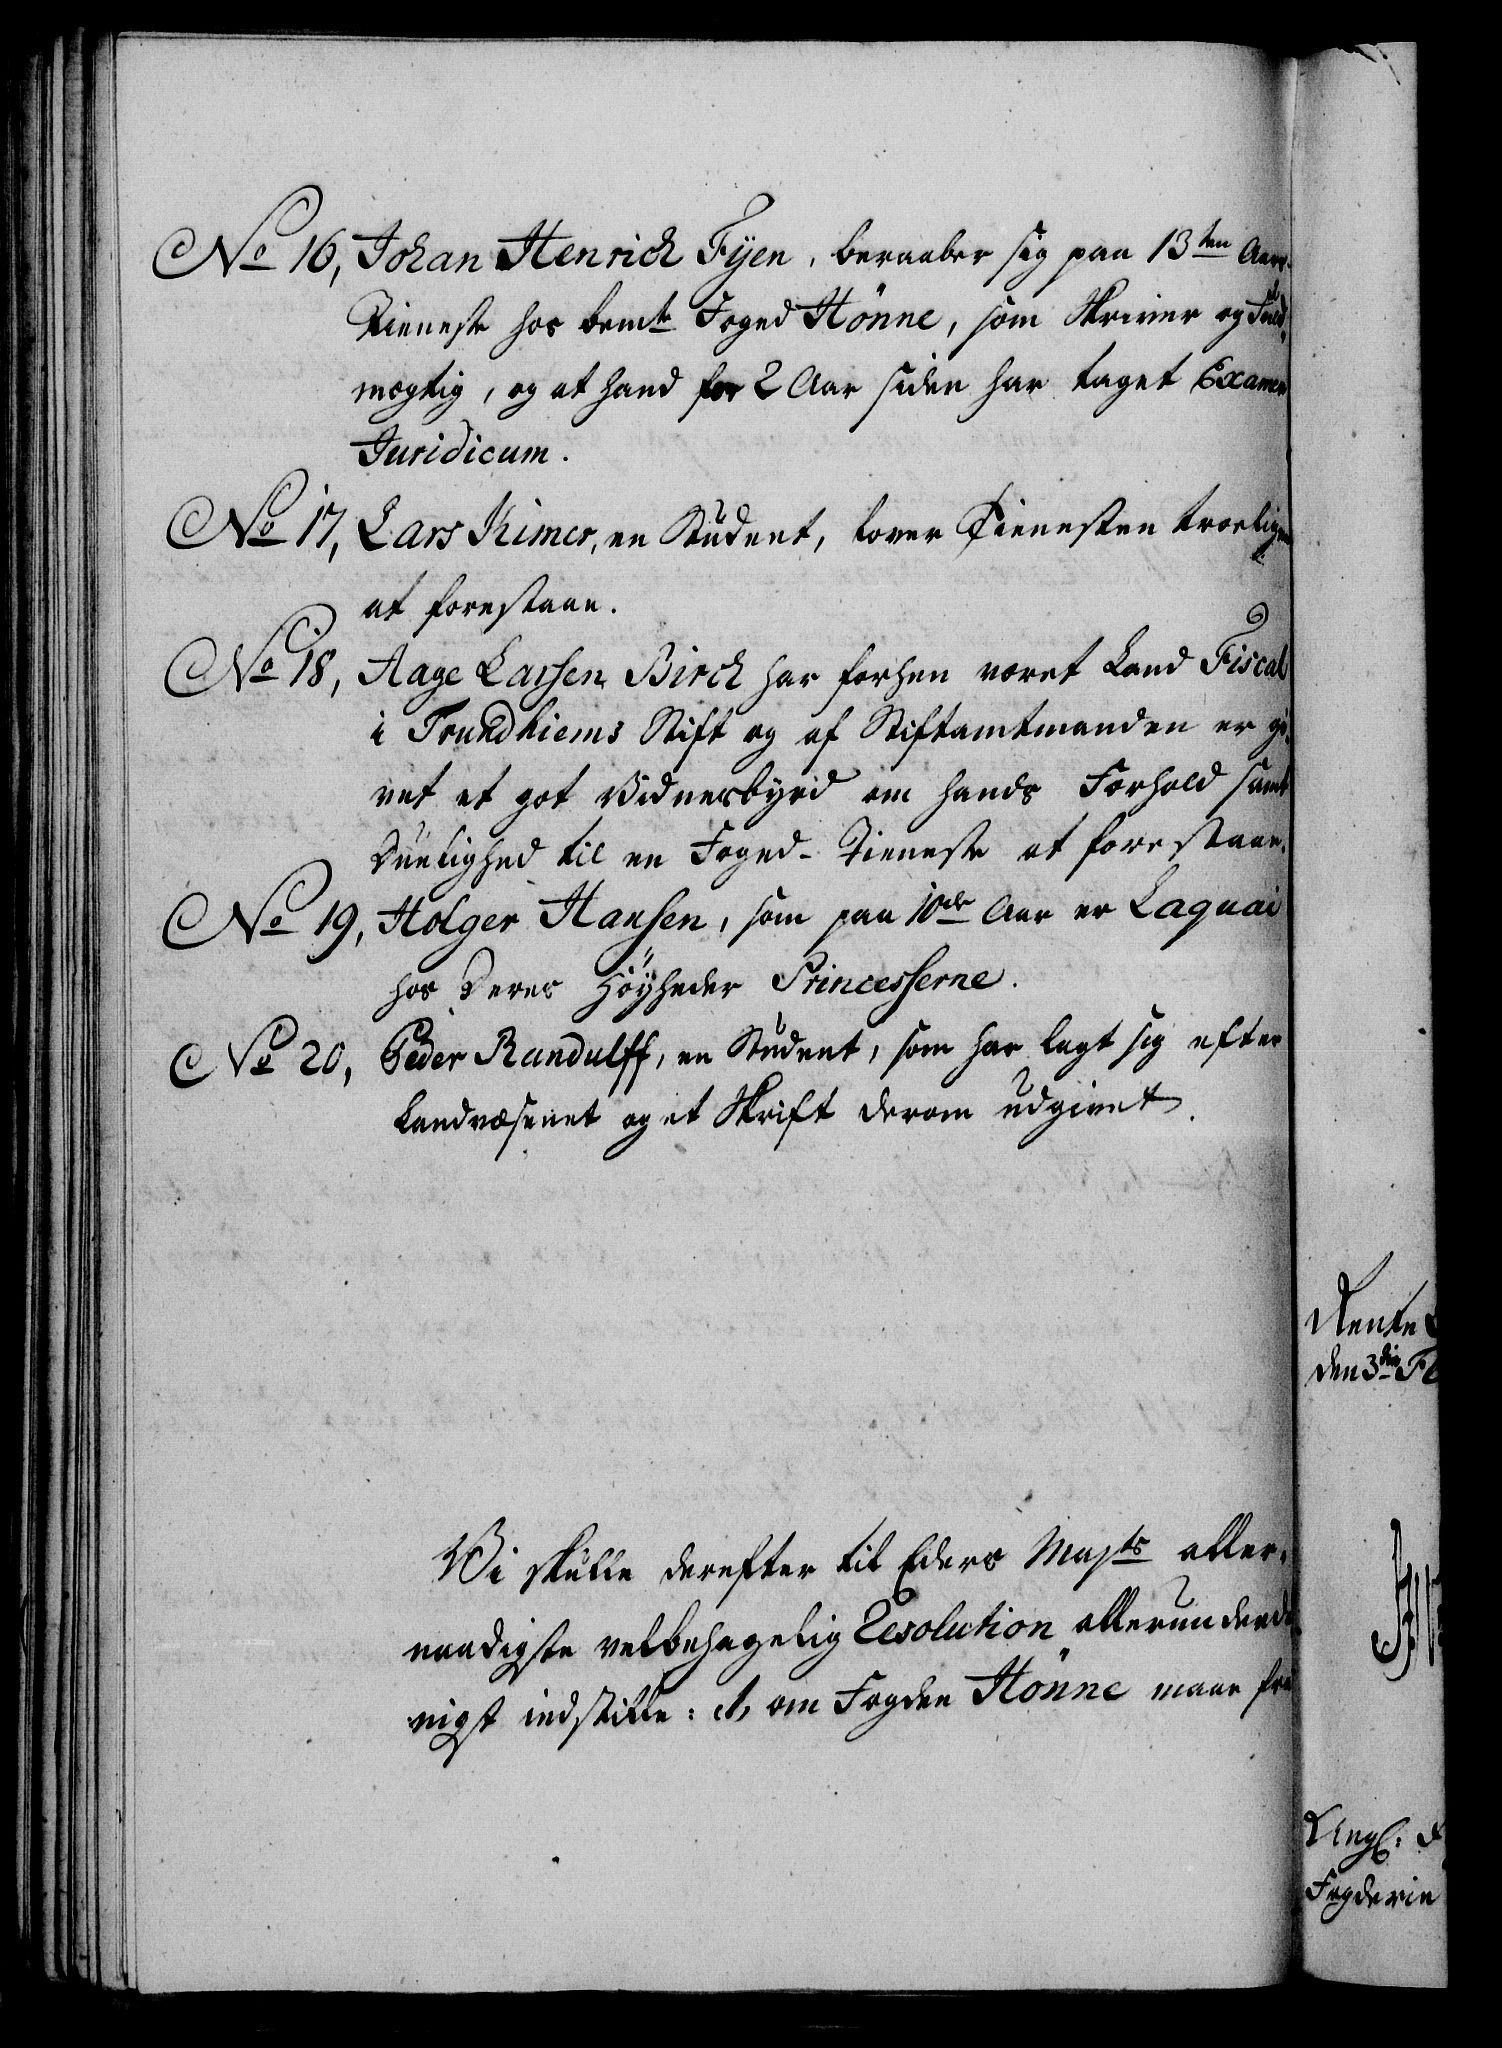 No 16, Johan Henrich Fyen, beraaber sig paa 13ten Aars
Tieneste hos bemte Foged Hönne, som Skriver og Fuld-
mægtig, og at hand for 2 Aar siden har taget Examen
Juridicum.
No 17, Lars Kimer, en Student, lover Tienesten troelig
at forestaae.
No 18, Aage Larsen Birch har forhen været Land Fiscal
i Trundhiems Stift og af Stiftamtmanden er gi-
vet et got Vidnesbyrd om hands Forhold samt
Duelighed til en Foged-Tieneste at forestaae.
No 19, Holger Hansen, som paa 10de Aar er Laquai
hos Deres Höyheder Princesserne.
No 20, Peder Randulff, en Student, som har lagt sig efter
Landvæsenet og et Skrift derom udgivet.
Vi skulle derefter til Eders Majts aller-
naadigste velbehagelig Resolution allerunderda-
nigst indstille: 1, om Fogden Hönne maae fra
Rente
den 3die
Fogderie